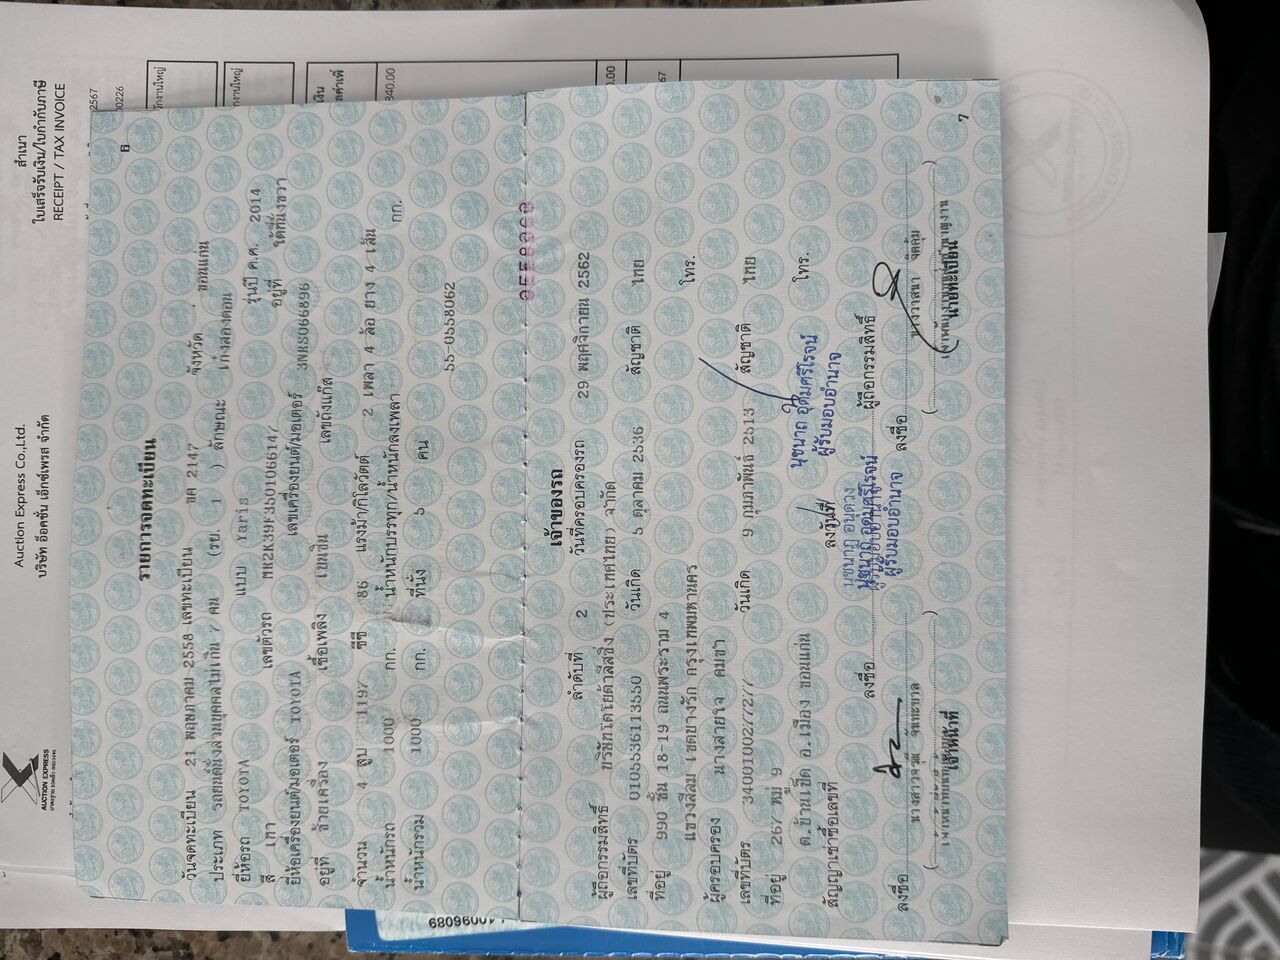 Auction Express Co.,Ltd.
บริษัท อ๊อคชั่น เอ็กซ์เพรส จำกัด
AUCTION EXPRESS
สำเนา
ใบเสร็จรับเงิน/ใบกำกับภาษี
RECEIPT / TAX INVOICE
6
รายการจดทะเบียน
วันจดทะเบียน 21 พฤษภาคม 2558 เลขทะเบียน ขค 2147 จังหวัด ขอนแก่น
ประเภท รถยนต์นั่งส่วนบุคคลไม่เกิน 7 คน (รย. 1 ) ลักษณะ เก๋งสองตอน
ยี่ห้อรถ TOYOTA แบบ Yaris รุ่นปี ค.ศ. 2014
สี เทา เลขตัวรถ MR2K39F3501066147 อยู่ที่
ยี่ห้อเครื่องยนต์/มอเตอร์ TOYOTA เลขเครื่องยนต์/มอเตอร์ 3NRS066896
อยู่ที่ ซ้ายเครื่อง เชื้อเพลิง เบนซิน เลขถังแก๊ส
จำนวน 4 สูบ 1197 ซีซี 86 แรงม้า/กิโลวัตต์ 2 เพลา 4 ล้อ ยาง 4 เส้น
น้ำหนักรถ 1000 กก. น้ำหนักบรรทุก/น้ำหนักลงเพลา กก.
น้ำหนักรวม 1000 กก. ที่นั่ง 5 คน
55-0558062
เจ้าของรถ
ลำดับที่ 2 วันที่ครอบครองรถ 29 พฤศจิกายน 2562
ผู้ถือกรรมสิทธิ์ บริษัทโตโยต้าลีสซิ่ง (ประเทศไทย) จำกัด
เลขที่บัตร 0105536113550 วันเกิด 5 ตุลาคม 2536 สัญชาติ ไทย
ที่อยู่ 990 ชั้น 18-19 ถนนพระราม 4 โทร.
แขวงสีลม เขตบางรัก กรุงเทพมหานคร
ผู้ครอบครอง นางสายใจ คมขำ
เลขที่บัตร วันเกิด 9 กุมภาพันธ์ 2513 สัญชาติ ไทย
ที่อยู่ 267 หมู่ 9 โทร.
ต.บ้านเป็ด อ.เมือง ขอนแก่น
สัญญาเช่าซื้อเลขที่ ลงวันที่
นุชนาถ อุดมศรีโรจน์
ผู้รับมอบอำนาจ
นุชนาถ อุดมศรีโรจน์
ผู้รับมอบอำนาจ
ลงชื่อ ผู้ถือกรรมสิทธิ์
ลงชื่อ
ลงชื่อ
เจ้าหน้าที่
นายทะเบียน
7